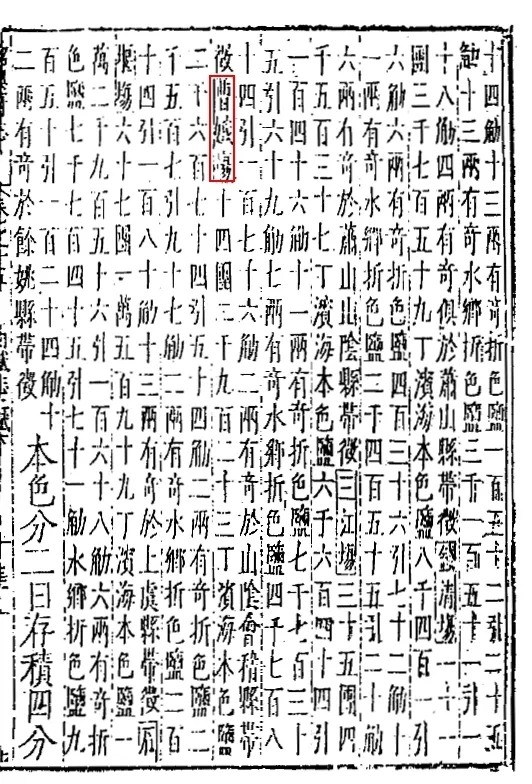 十四觔十三兩有奇折色鹽一百五十二引二十五
觔十三兩有奇水鄉折色鹽三千一百五十一引一
十八觔四兩有奇俱於蕭山縣帶徵錢清場一十一
團三千七百五十九丁濱海本色鹽八千四百一引
六觔六兩有奇折色鹽四百三十六引七十二觔十
一兩有奇水鄉折色鹽二千四百五十五引二十觔
六兩有奇於蕭山山陰縣帶徵三江場三十五團四
千五百三十七丁濱海本色鹽六千六百四十四引
一百四十六觔十一兩有奇折色鹽七千七百三十
五引六十九觔七兩有奇水鄉折色鹽四千七百八
十四引一百七十六觔二兩有奇於山陰會稽縣帶
徵曹娥場十四團二千九百二十三丁濱海本色鹽
二千六百七十四引五十四觔二兩有奇折色鹽二
千五百七引九十七觔二兩有奇水鄉折色鹽二百
十四引一百八十觔十三兩有奇於上虞縣帶徵石
堰場六十七團一萬五百九十九丁濱海本色鹽一
萬二千九百五十六引一百六十八觔六兩有奇折
色鹽七千七百四十五引七十一觔水鄉折色鹽九
百五十引一百二十四觔十
二兩有奇於餘姚縣帶徵
本色分二曰存積四分